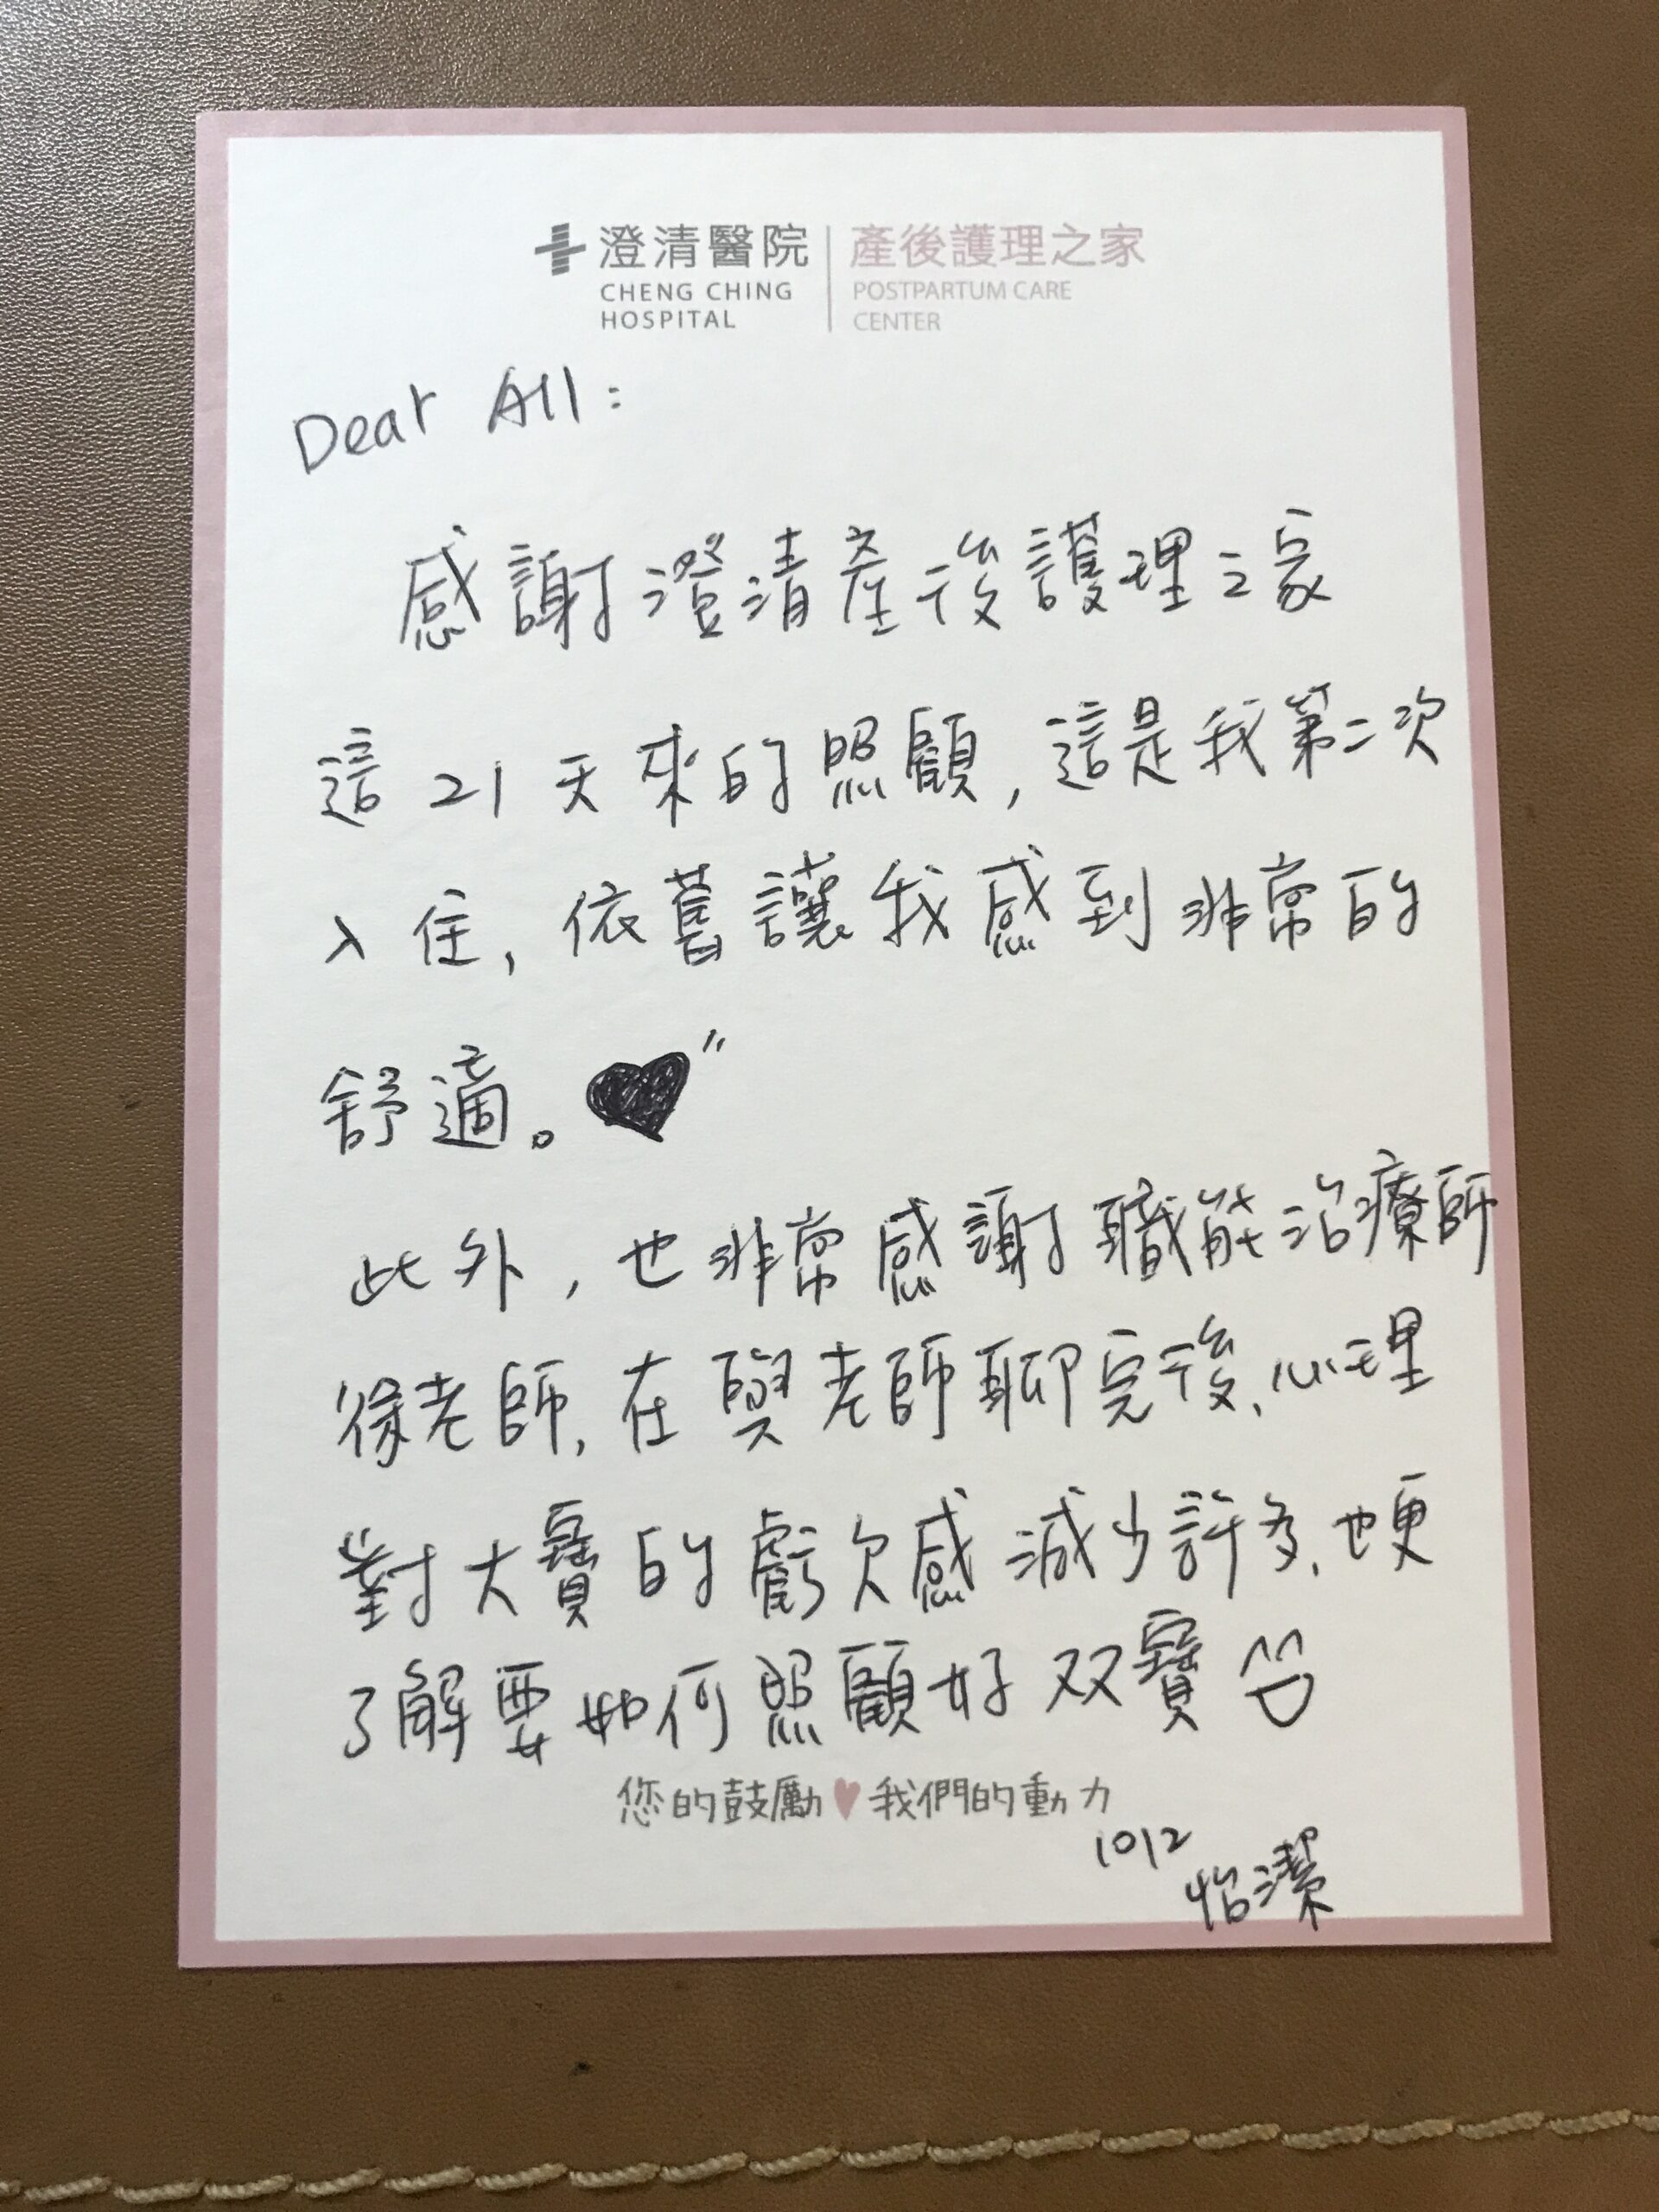 澄清醫院 產後護理之家
CHENG CHING POSTPARTUM CARE
HOSPITAL CENTER
Dear All:
感謝澄清產後護理之家
這21天來的照顧,這是我第二次
入住,依舊讓我感到非常的
舒適。
此外,也非常感謝職能治療師
徐老師,在與老師聊完後、心理
對大寶的虧欠感減少許多、也更
了解要如何照顧好双寶
您的鼓勵我們的動力
1012
怡潔